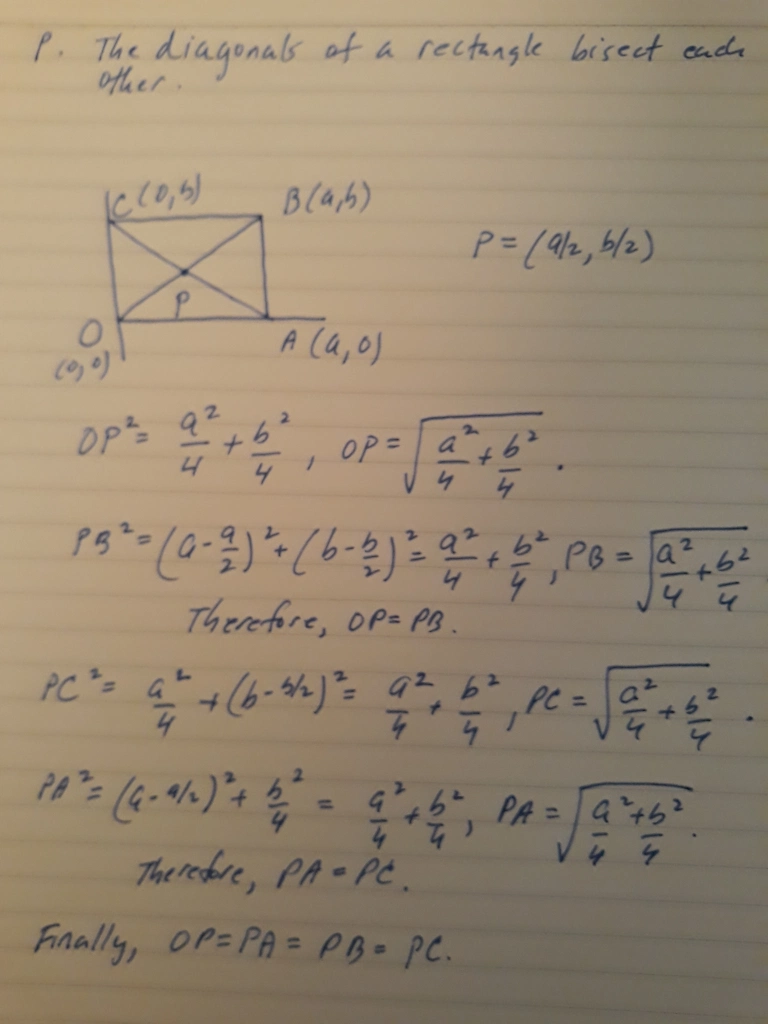 P. The diagonals of a rectangle bisect each
other.
C (0,b) B(a,b)
P = (a/2, b/2)
P
O A (a,0)
(0,0)
OP² = a²/4 + b²/4 , OP = √(a²/4 + b²/4) .
PB² = (a - a/2)² + (b - b/2)² = a²/4 + b²/4 , PB = √(a²/4 + b²/4)
Therefore, OP = PB.
PC² = a²/4 + (b - b/2)² = a²/4 + b²/4 , PC = √(a²/4 + b²/4) .
PA² = (a - a/2)² + b²/4 = a²/4 + b²/4 , PA = √(a²/4 + b²/4) .
Therefore, PA = PC.
Finally, OP = PA = PB = PC.